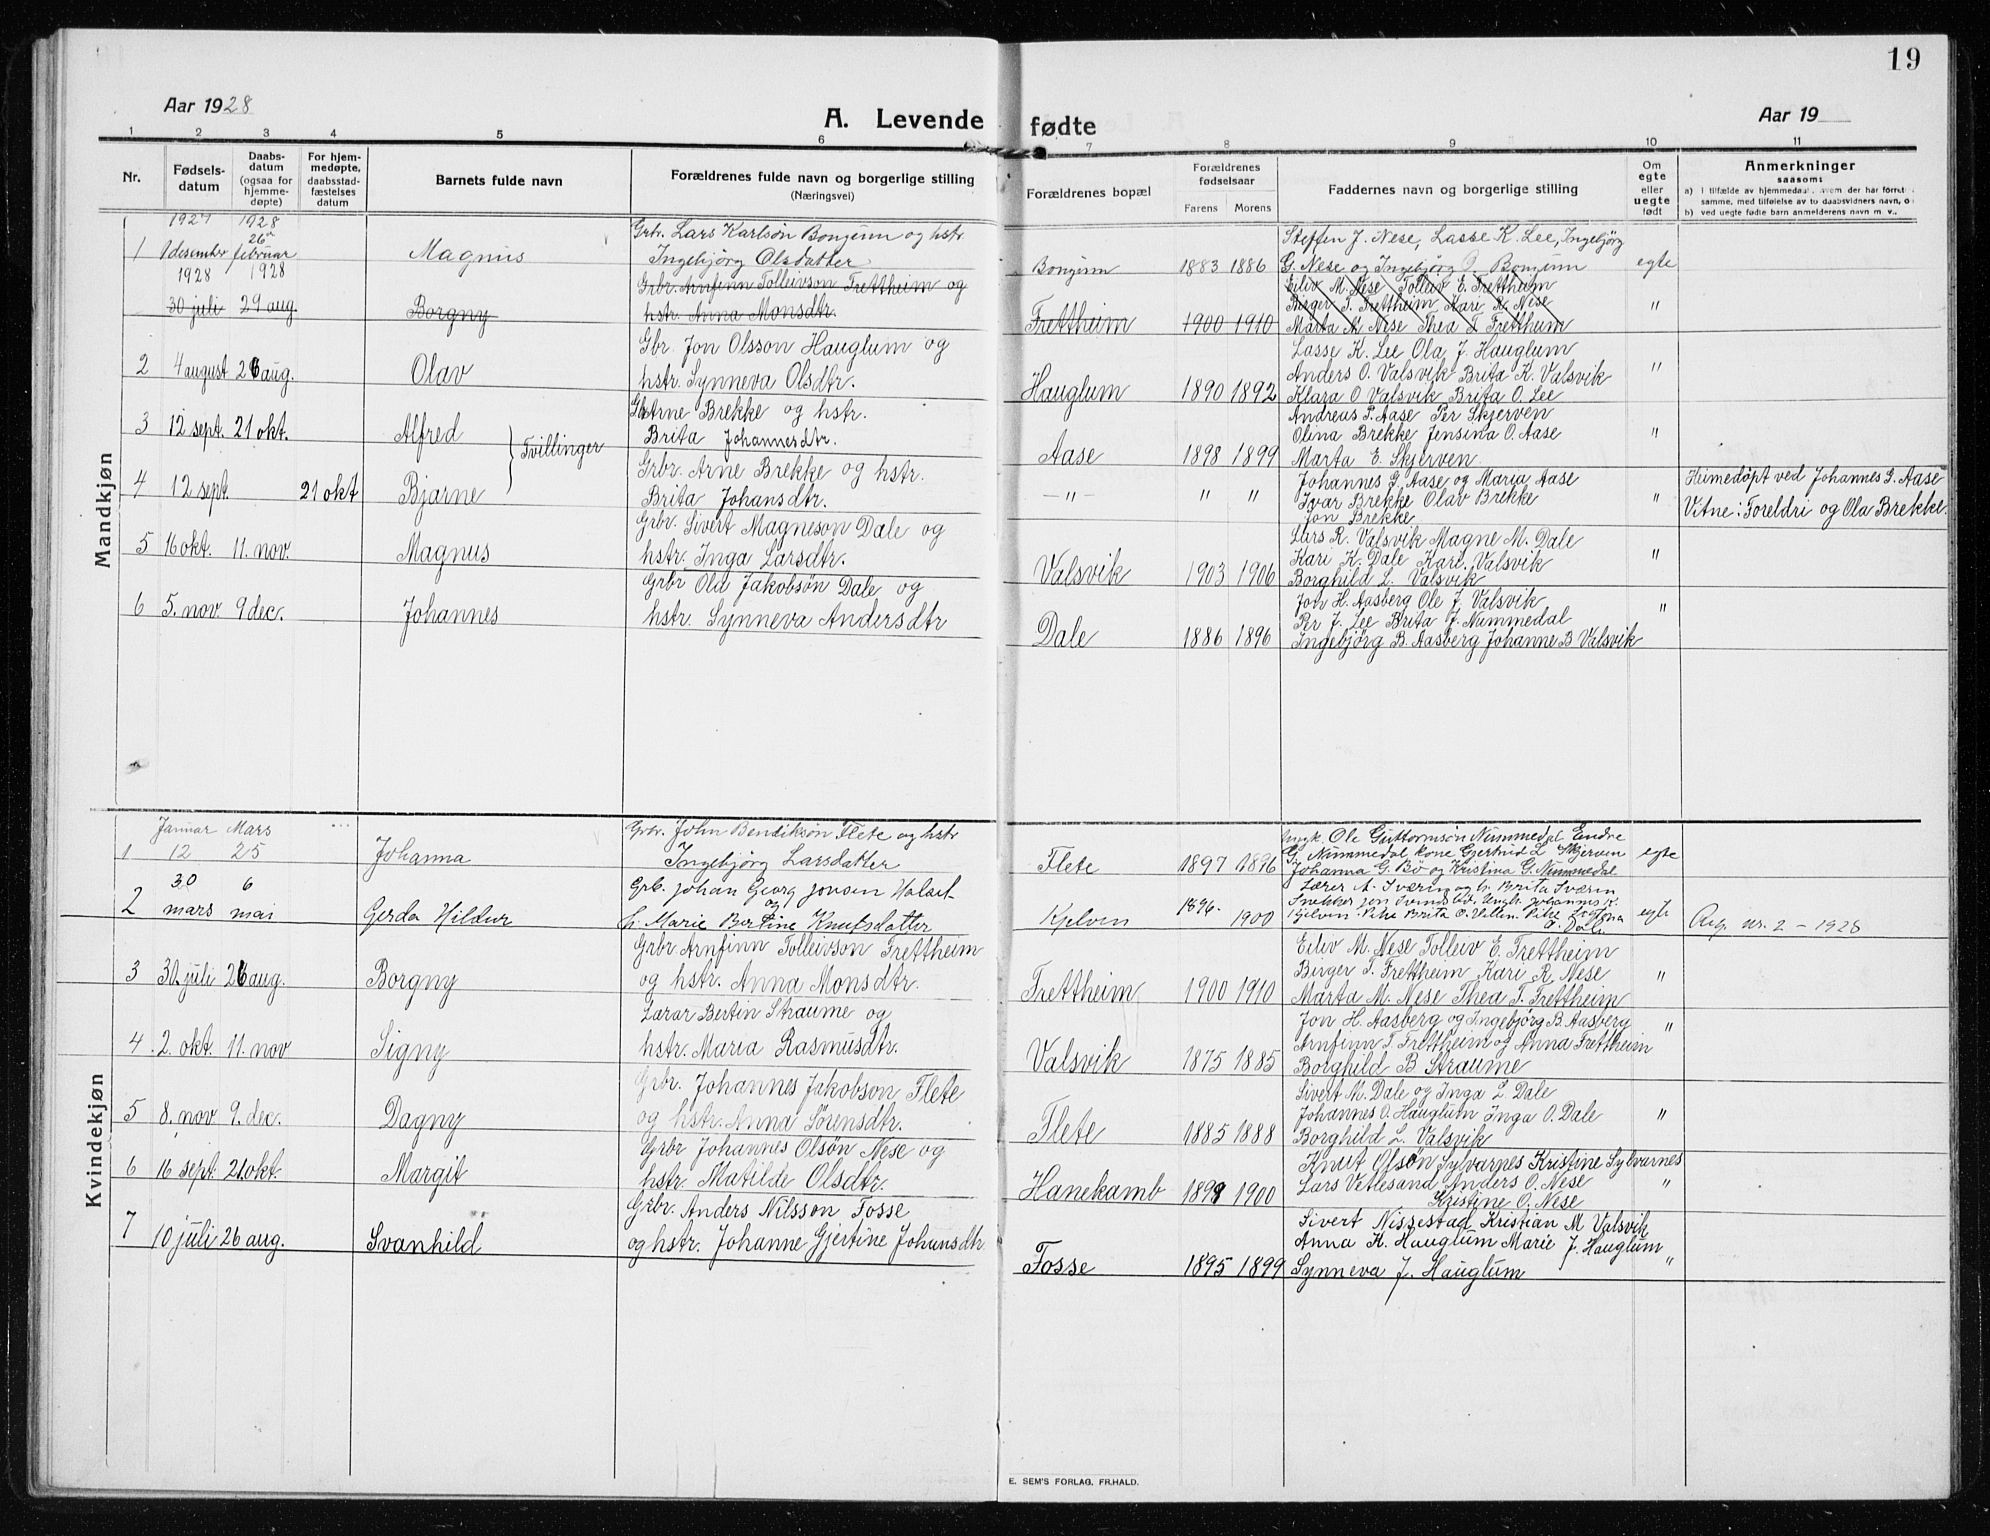 19
Aar 1928
A. Levende fødte
Aar 19
1 2 3 4 5 6 7 8 9 10 11
Nr.
Fødsels-
datum
Daabs-
datum
(ogsaa for
hjemme-
døpte)
For hjem-
medøpte,
daabsstad-
fæstelses
datum
Barnets fulde navn
Forældrenes fulde navn og borgerlige stilling
(Næringsvei)
Forældrenes bopæl
Forældrenes
fødselsaar
Farens Morens
Faddernes navn og borgerlige stilling
Om
egte
eller
uegte
født
Anmerkninger
saasom:
b) ved uegte fødte barn anmelderens navn m. v.,
Mandkjøn
1927 1928
1 1 desember 26 februar Magnus
Grbr. Lars Karlsøn Bongum og hstr.
Ingebjørg Olsdatter
Bongum 1883 1886
Steffen J. Nese, Lasse K. Lee, Ingebjörg
G. Nese og Ingebjörg O. Bongum
egte
1928 1928
30 juli 29 aug. Borgny
Grbr. Arnfinn Tolleivson Frettheim og
hstr. Anna Monsdtr.
Frettheim 1900 1910
Eiliv M. Nese Tolleiv E. Frettheim
Birger T. Frettheim Kari R. Nese
Marta M. Nese Thea T. Frettheim
"
2 4 august 26 aug. Olav
Gbr. Jon Olsson Hauglum og
hstr. Synneva Olsdtr.
Hauglum 1890 1892
Lasse K. Lee Ola J. Hauglum
Anders O. Valsvik Brita K. Valsvik
Klara O Valsvik Brita O. Lee
"
3 12 sept. 21 okt. Alfred
Tvillinger
Arne Brekke og hstr.
Brita Johannesdtr.
Aase 1898 1899
Andreas P. Aase Per Skjerven
Olina Brekke Jensina O. Aase
Marta E. Skjerven
"
4 12 sept. 21 okt Bjarne
Grbr. Arne Brekke og hstr.
Brita Johansdtr.
— " — " "
Johannes G. Aase og Maria Aase
Ivar Brekke Olav Brekke
Jon Brekke
"
Heimedøpt ved Johannes G. Aase
Vitne: Foreldri og Ola Brekke.
5 16 okt. 11. nov. Magnus
Grbr. Sivert Magneson Dale og
hstr. Inga Larsdtr.
Valsvik 1903 1906
Lars R. Valsvik Magne M. Dale
Kari K. Dale Kari Valsvik
Borghild L. Valsvik
"
6 5. nov. 9 dec. Johannes
Grbr Ola Jakobsøn Dale og
hstr. Synneva Andersdtr
Dale 1886 1896
Jon H. Aasberg Ole J. Valsvik
Per J. Lee Brita J. Nummedal
Ingebjørg B. Aasberg Johanne B Valsvik
"
Kvindekjøn
Januar Mars
1 12 25 Johanna
Grbr. John Bendiksøn Flete og hstr
Ingebjörg Larsdatter
Flete 1897 1896
Ole Guttormsøn Nummedal Endre
G. Nummedal kone Gjertrud L. Skjerven
Johanna G. Bö og Kristina G. Nummedal
egte
30 6
2 mars mai Gerda Hildur
Grb. Johan Georg Jonsen Halset
og
h. Marie Bertine Knutsdatter
Kjelven 1896. 1900
Lærer A. Sværen og h. Brita Sværen
egte
Reg. nr. 2 – 1928
3 30. juli 26 aug. Borgny
Grbr Arnfinn Tolleivson Frettheim
og hstr. Anna Monsdtr.
Frettheim 1900 1910
Eiliv M. Nese Tolleiv E. Frettheim
Birger T. Frettheim Kari R. Nese
Marta M. Nese Thea T. Frettheim
"
4. 2. okt. 11. nov Signy
Lærar Bertin Straume og
hstr. Maria Rasmusdtr.
Valsvik 1875 1885
Jon H. Aasberg og Ingebjørg B. Aasberg
Arnfinn T Frettheim og Anna Frettheim
Borghild B Straume
"
5 8. nov 9. dec. Dagny
Grbr. Johannes Jakobson Flete
og hstr. Anna Sörensdtr.
Flete 1885 1888
Sivert M. Dale og Inga L. Dale
Johannes O. Hauglum Inga O. Dale
Borghild L. Valsvik
"
6 16 sept. 21. okt. Margit
Grbr Johannes Olsøn Nese og
hstr. Matilde Olsdtr.
Hanekamb 1899 1900
Knut Olsøn Sylvarnes Kristine Sylvarnes
Lars Vetlesand Anders O. Nese
Kristine O. Nese
"
7 10 juli 26 aug. Svanhild
Grbr. Anders Nilsson Fosse
og hstr. Johanne Gjertine Johansdtr
Fosse 1895 1899
Sivert Nissestad Kristian M Valsvik
Anna K. Hauglum Marie J. Hauglum
Synneva J. Hauglum
"
E. SEM'S FORLAG, FR.HALD.